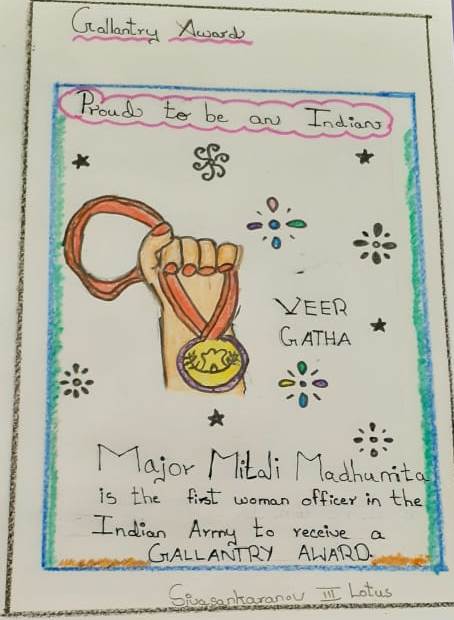 Gallantry Award
Proud to be an Indian
VEER
GATHA
Major Mitali Madhumita
is the first woman officer in the
Indian Army to receive a
GALLANTRY AWARD.
Sivasankaranav III Lotus